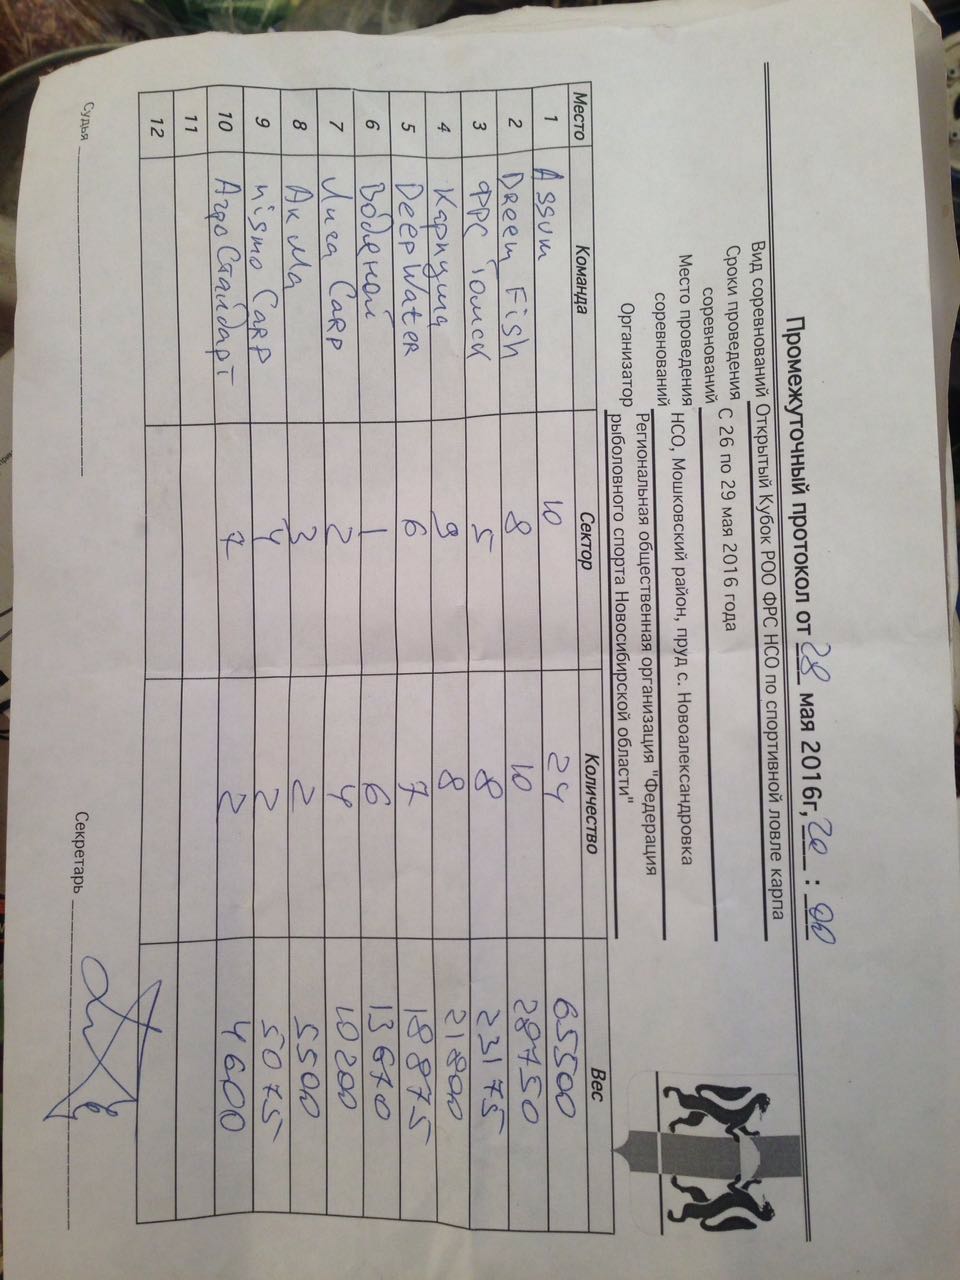 Промежуточный протокол от 28 мая 2016г, 20 : 00
Вид соревнований Открытый Кубок РОО ФРС НСО по спортивной ловле карпа
Сроки проведения соревнований С 26 по 29 мая 2016 года
Место проведения соревнований НСО, Мошковский район, пруд с. Новоалександровка
Организатор Региональная общественная организация "Федерация
рыболовного спорта Новосибирской области"
Место Команда Сектор Количество Вес
1 Assum 10 24 65500
2 Dreem Fish 8 10 28750
3 ФРС Томск 5 8 23175
4 Карпушa 9 8 21800
5 DeepWater 6 7 18875
6 Водяной 1 6 13670
7 Лига Carp 2 4 10200
8 АкМа 3 2 5500
9 nismo Carp 4 2 5075
10 АгроСтандарт 7 2 4600
11
12
Судья Секретарь